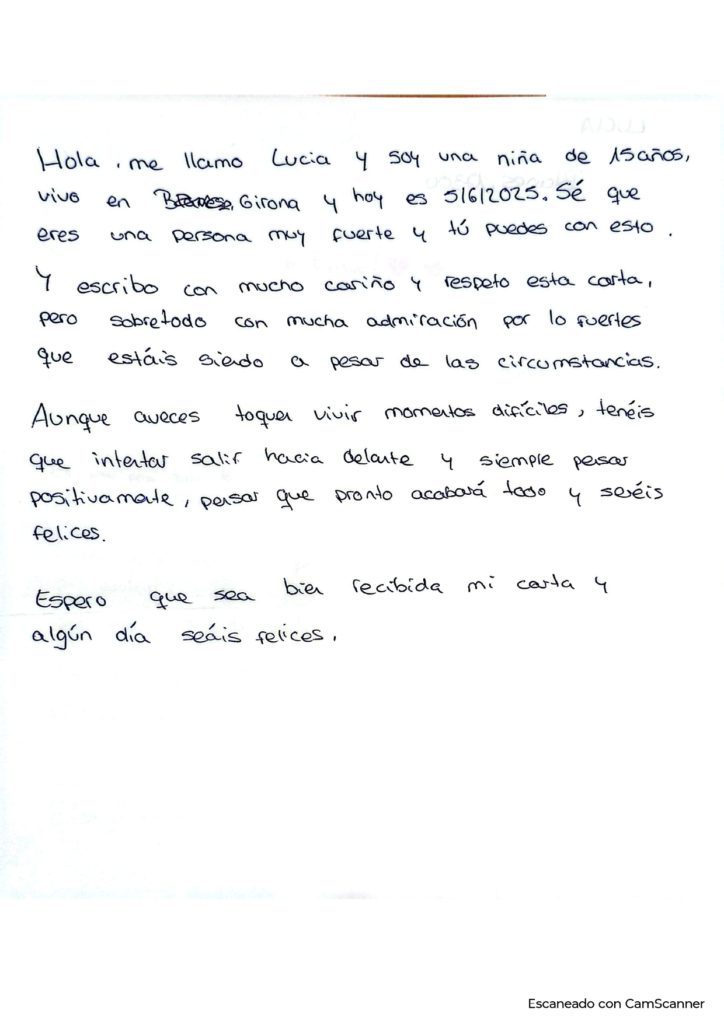 Hola, me llamo Lucia y soy una niña de 15 años,
vivo en Girona y hoy es 5/6/2025. Sé que
eres una persona muy fuerte y tú puedes con esto.
Y escribo con mucho cariño y respeto esta carta,
pero sobretodo con mucha admiración por lo fuertes
que estáis siendo a pesar de las circumstancias.
Aunque aveces toquen vivir momentos difíciles, tenéis
que intentar salir hacia delante y siempre pensar
positivamente, pensar que pronto acabará todo y seréis
felices.
Espero que sea bien recibida mi carta y
algún día seáis felices.
Escaneado con CamScanner